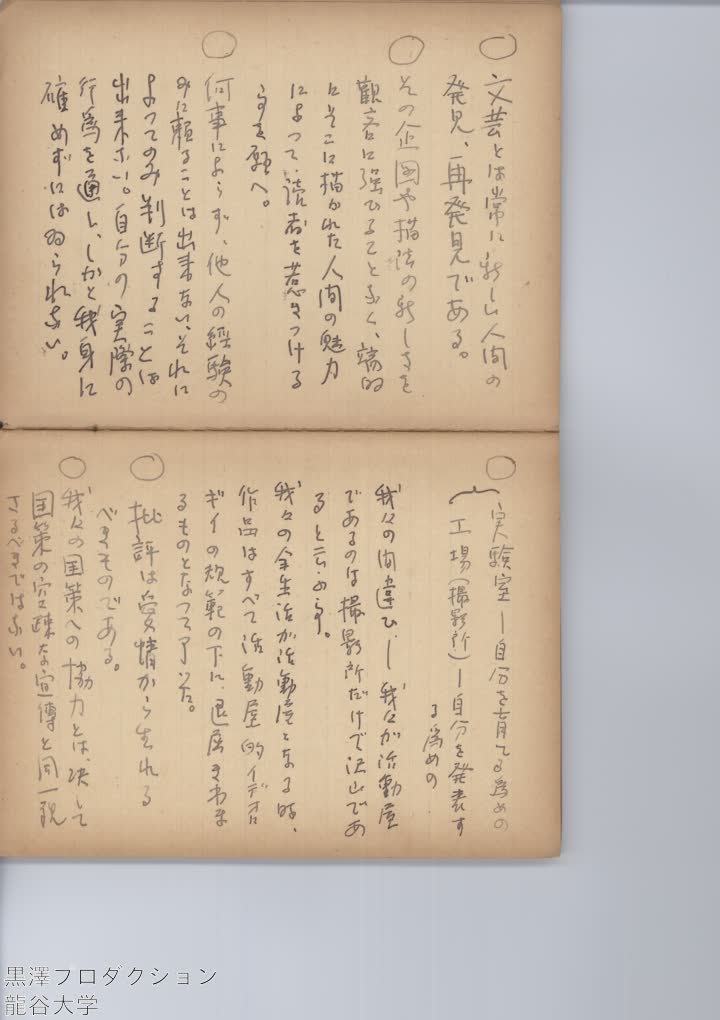 ○ 文芸とは常に新しい人間の
発見、再発見である。
○ その企図や描法の新しさを
観客に強ひることなく、端的
にそこに描かれた人間の魅力
によって、読者を惹きつける
○ 何事によらず、他人の経験の
みに頼ることは出来ない、それに
よってのみ判断することは
出来ない。自分の実際の
行為を通し、しかと我身に
確めずにはゐられない。
○ 実験室―自分を育てる為めの
工場(撮影所)―自分を発表す
る為めの
我々の間違ひ―我々が活動屋
であるのは撮影所だけで沢山であ
ると云ふ
我々の全生活が活動屋となる時、
作品はすべて活動屋的イデオロ
ギイの規範の下に、退屈きわま
るものとなつて了つた。
○ 批評は愛情から生れる
べきものである。
○ 我々の国策への協力とは、決して
国策の空疎な宣傳と同一視
さるべきではない。
黒澤プロダクション
龍谷大学